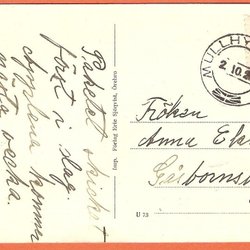 Paketet skickat
först i dag.
Äpplena kommer
nästa vecka.
Imp. Förlag Eric Sjöqvist, Örebro
MULLHY
2.10.
Fröken
Anna Ek
Gårbornsh
U 73